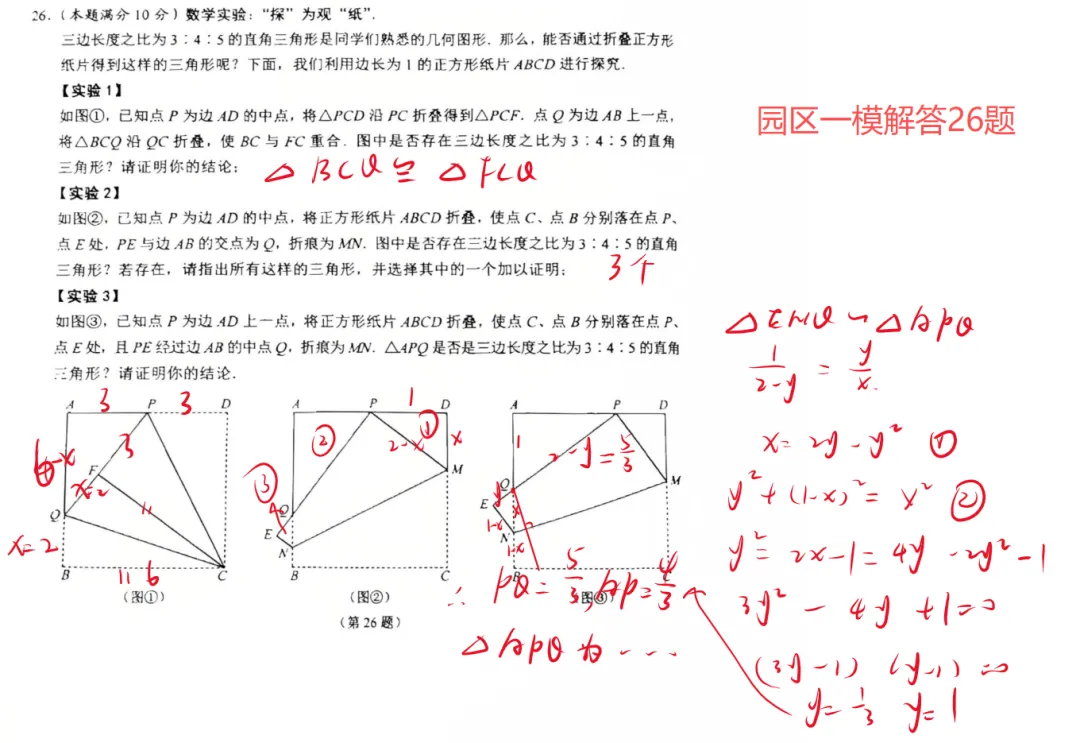 26.(本题满分10分)数学实验:“探”为观“纸”.
三边长度之比为3:4:5的直角三角形是同学们熟悉的几何图形.那么,能否通过折叠正方形
纸片得到这样的三角形呢?下面,我们利用边长为1的正方形纸片ABCD进行探究.
【实验1】
如图①,已知点P为边AD的中点,将△PCD沿PC折叠得到△PCF.点Q为边AB上一点,
将△BCQ沿QC折叠,使BC与FC重合.图中是否存在三边长度之比为3:4:5的直角
三角形?请证明你的结论;
△BCQ≌△FCQ
园区一模解答26题
【实验2】
如图②,已知点P为边AD的中点,将正方形纸片ABCD折叠,使点C、点B分别落在点P、
点E处,PE与边AB的交点为Q,折痕为MN.图中是否存在三边长度之比为3:4:5的直角
三角形?若存在,请指出所有这样的三角形,并选择其中的一个加以证明;
3个
【实验3】
如图③,已知点P为边AD上一点,将正方形纸片ABCD折叠,使点C、点B分别落在点P、
点E处,且PE经过边AB的中点Q,折痕为MN.△APQ是否是三边长度之比为3:4:5的直角
三角形?请证明你的结论.
A 3 P 3 D
3
F
x=2
Q
x=2
B 6 C
(图①)
A P 1 D
① ②
2-x x
M
③
Q
E
N
B C
(图②)
(第26题)
A P D
1
2-y=5/3
M
Q
E y x
1-x
N
1-x
B C
(图③)
△ENQ∽△APQ
1/(2-y)=y/x.
x=2y-y² ①
y²+(1-x)²=x² ②
y²=2x-1=4y-2y²-1
3y²-4y+1=0
(3y-1)(y-1)=0
y=1/3 y=1
∴PQ=5/3,AP=4/3
△APQ为……